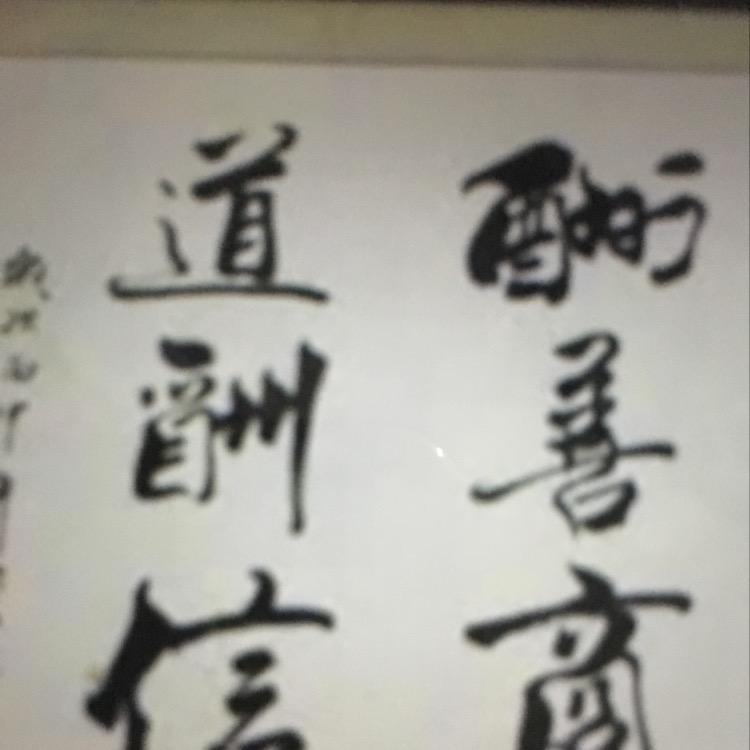 酬善商
道酬信